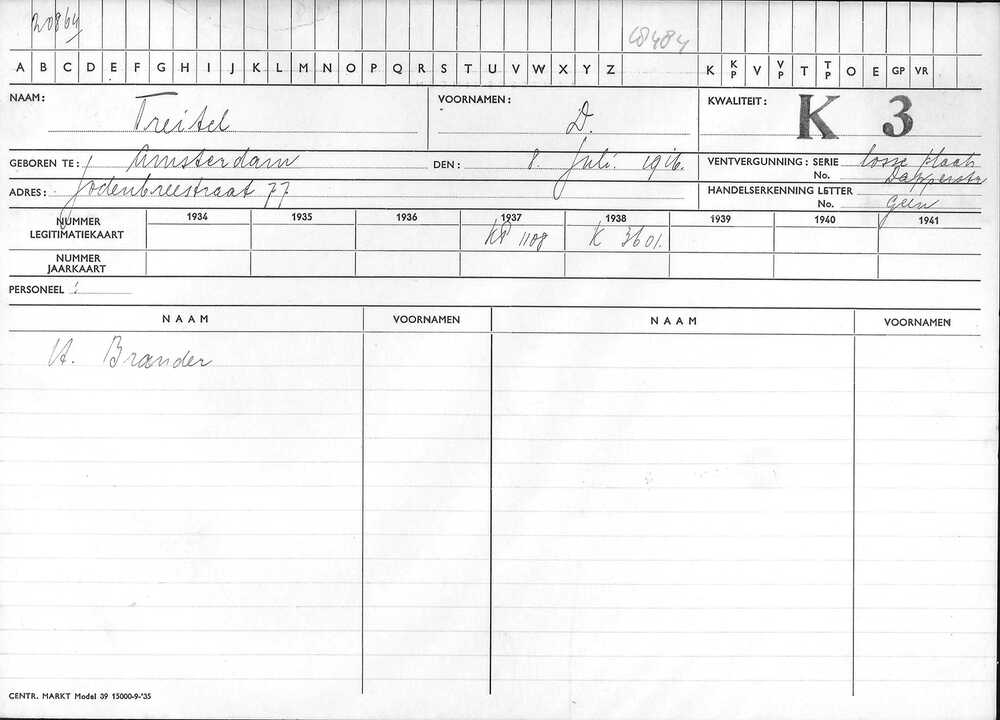 20864
48484
A B C D E F G H I J K L M N O P Q R S T U V W X Y Z K KP V VP T TP O E GP VR
NAAM: Treitel VOORNAMEN: D. KWALITEIT: K 3
GEBOREN TE: Amsterdam DEN: 8. Juli. 1916. VENTVERGUNNING: SERIE losse plaats
No. Dapperstr
ADRES: Jodenbreestraat 77 HANDELSERKENNING LETTER
No. Geen
1934 1935 1936 1937 1938 1939 1940 1941
NUMMER LEGITIMATIEKAART KP 1108 K 3601.
NUMMER JAARKAART
PERSONEEL :
NAAM VOORNAMEN NAAM VOORNAMEN
A. Brander
CENTR. MARKT Model 39 15000-9-'35